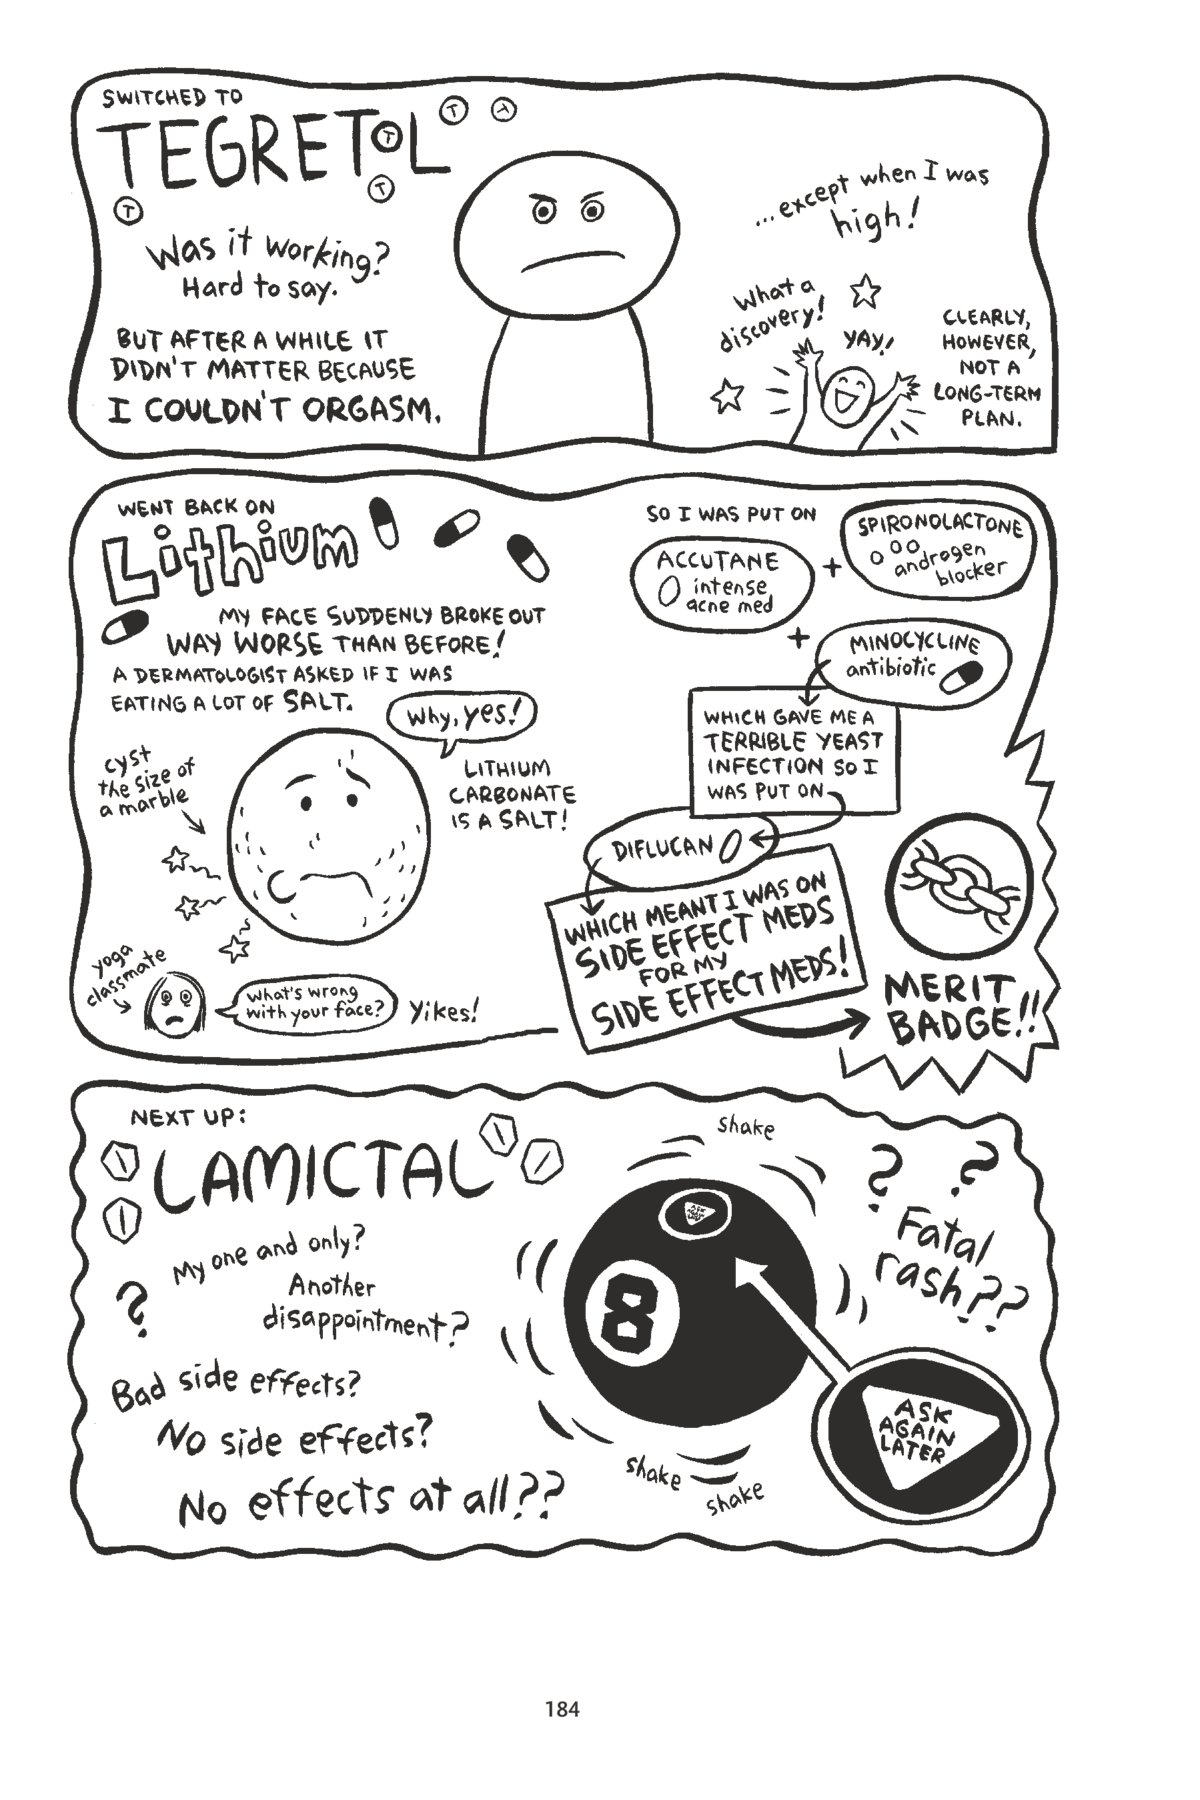 SWITCHED TO
TEGRETOL
T
T
T
T
T
Was it working?
Hard to say.
BUT AFTER A WHILE IT
DIDN'T MATTER BECAUSE
I COULDN'T ORGASM.
...except when I was
high!
What a
discovery!
YAY!
CLEARLY,
HOWEVER,
NOT A
LONG-TERM
PLAN.
WENT BACK ON
Lithium
MY FACE SUDDENLY BROKE OUT
WAY WORSE THAN BEFORE!
A DERMATOLOGIST ASKED IF I WAS
EATING A LOT OF SALT.
Why, yes!
LITHIUM
CARBONATE
IS A SALT!
cyst
the size of
a marble
yoga
classmate
What's wrong
with your face?
Yikes!
SO I WAS PUT ON
ACCUTANE
intense
acne med
+
SPIRONOLACTONE
androgen
blocker
+
MINOCYCLINE
antibiotic
WHICH GAVE ME A
TERRIBLE YEAST
INFECTION SO I
WAS PUT ON
DIFLUCAN
WHICH MEANT I WAS ON
SIDE EFFECT MEDS
FOR MY
SIDE EFFECT MEDS!
MERIT
BADGE!!
NEXT UP:
LAMICTAL
My one and only?
?
Another
disappointment?
Bad side effects?
No side effects?
No effects at all??
shake
ASK
AGAIN
LATER
8
shake
shake
? ?
Fatal
rash??
ASK
AGAIN
LATER
184